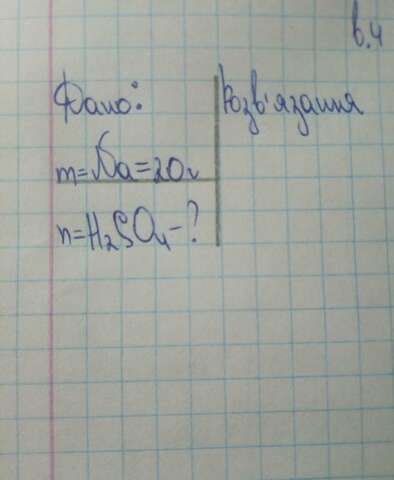 в.4
Дано:
Розв'язання
m=Na=20г
n=H₂SO₄-?